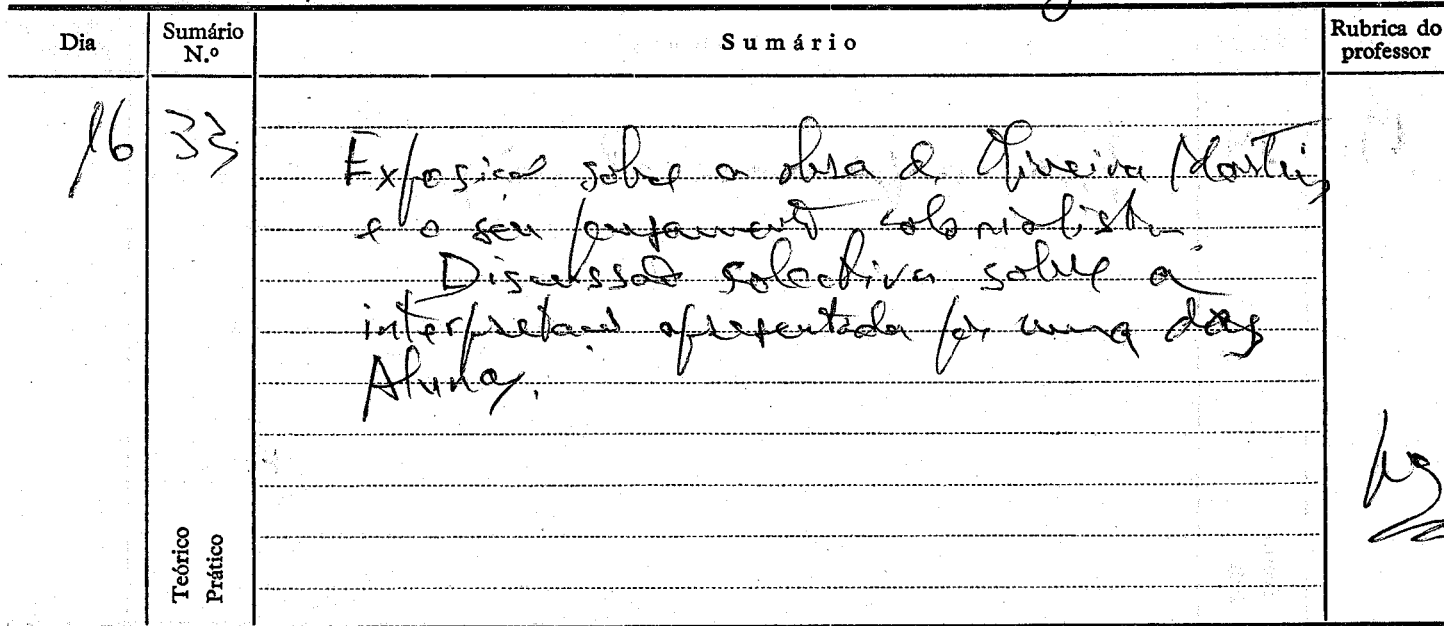 Dia
Sumário N.º
Sumário
Rubrica do professor
16
33
Exposição sobre a obra de Oliveira Martins
e o seu pensamento colonialista.
Discussão colectiva sobre a
interpretação apresentada por uma das
Alunas.
Teórico
Prático